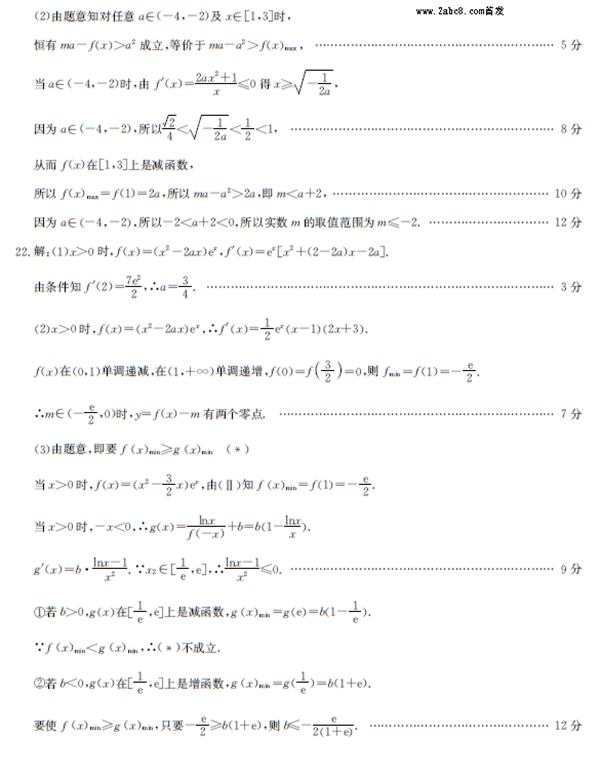 www.2abc8.com首发
(2)由题意知对任意 a∈(-4,-2)及 x∈[1,3]时,
恒有 ma-f(x)>a²成立,等价于 ma-a²>f(x)max, …… 5分
当 a∈(-4,-2)时,由 f′(x)=(2ax²+1)/x≤0 得 x≥√(-1/(2a)),
因为 a∈(-4,-2),所以√2/4<√(-1/(2a))<1/2<1, …… 8分
从而 f(x)在[1,3]上是减函数,
所以 f(x)max=f(1)=2a,所以 ma-a²>2a,即 m<a+2, …… 10分
因为 a∈(-4,-2),所以-2<a+2<0,所以实数 m 的取值范围为 m≤-2. …… 12分
22.解:(1)x>0 时,f(x)=(x²-2ax)eˣ,f′(x)=eˣ[x²+(2-2a)x-2a].
由条件知 f′(2)=7e²/2,∴a=3/4. …… 3分
(2)x>0 时,f(x)=(x²-2ax)eˣ,∴f′(x)=1/2eˣ(x-1)(2x+3).
f(x)在(0,1)单调递减,在(1,+∞)单调递增,f(0)=f(3/2)=0,则 fmin=f(1)=-e/2.
∴m∈(-e/2,0)时,y=f(x)-m 有两个零点. …… 7分
(3)由题意,即要 f(x)min≥g(x)min (*)
当 x>0 时,f(x)=(x²-3/2x)eˣ,由(Ⅱ)知 f(x)min=f(1)=-e/2.
当 x>0 时,-x<0,∴g(x)=lnx/f(-x)+b=b(1-lnx/x).
g′(x)=b·(lnx-1)/x².∵x₂∈[1/e,e],∴(lnx-1)/x²≤0. …… 9分
①若 b>0,g(x)在[1/e,e]上是减函数,g(x)min=g(e)=b(1-1/e).
∵f(x)min<g(x)min,∴(*)不成立.
②若 b<0,g(x)在[1/e,e]上是增函数,g(x)min=g(1/e)=b(1+e).
要使 f(x)min≥g(x)min,只要-e/2≥b(1+e),则 b≤-e/(2(1+e)). …… 12分